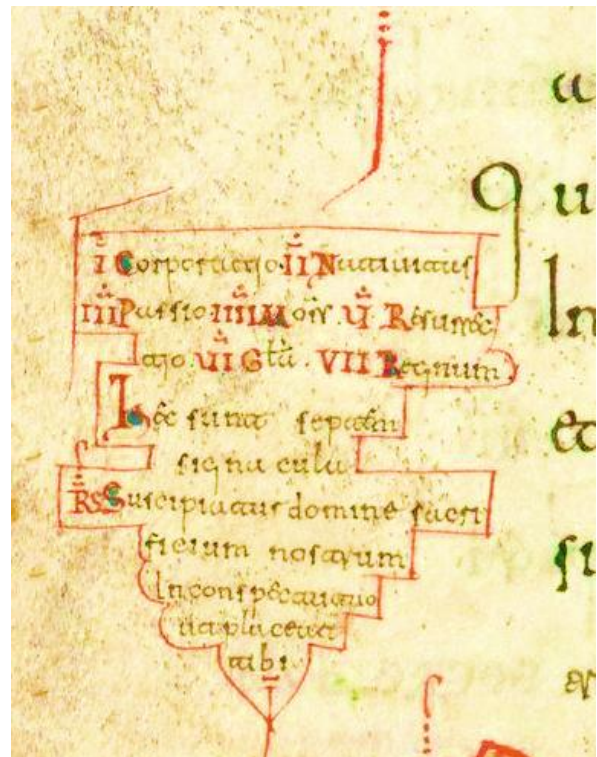 I Corporatio II Natiuitas
III Passio IIII Mors V Resurrec
tio VI Gla VII Regnum
Hec sunt septem
signacula
RS Suscipiatur domine sacri
ficium nostrum
In conspectu tuo
ut placeat
tibi